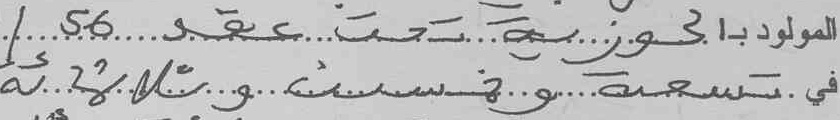 المولود بالجوزية تحت عقد 56
في تسعة وخمسين وثلاثمائة